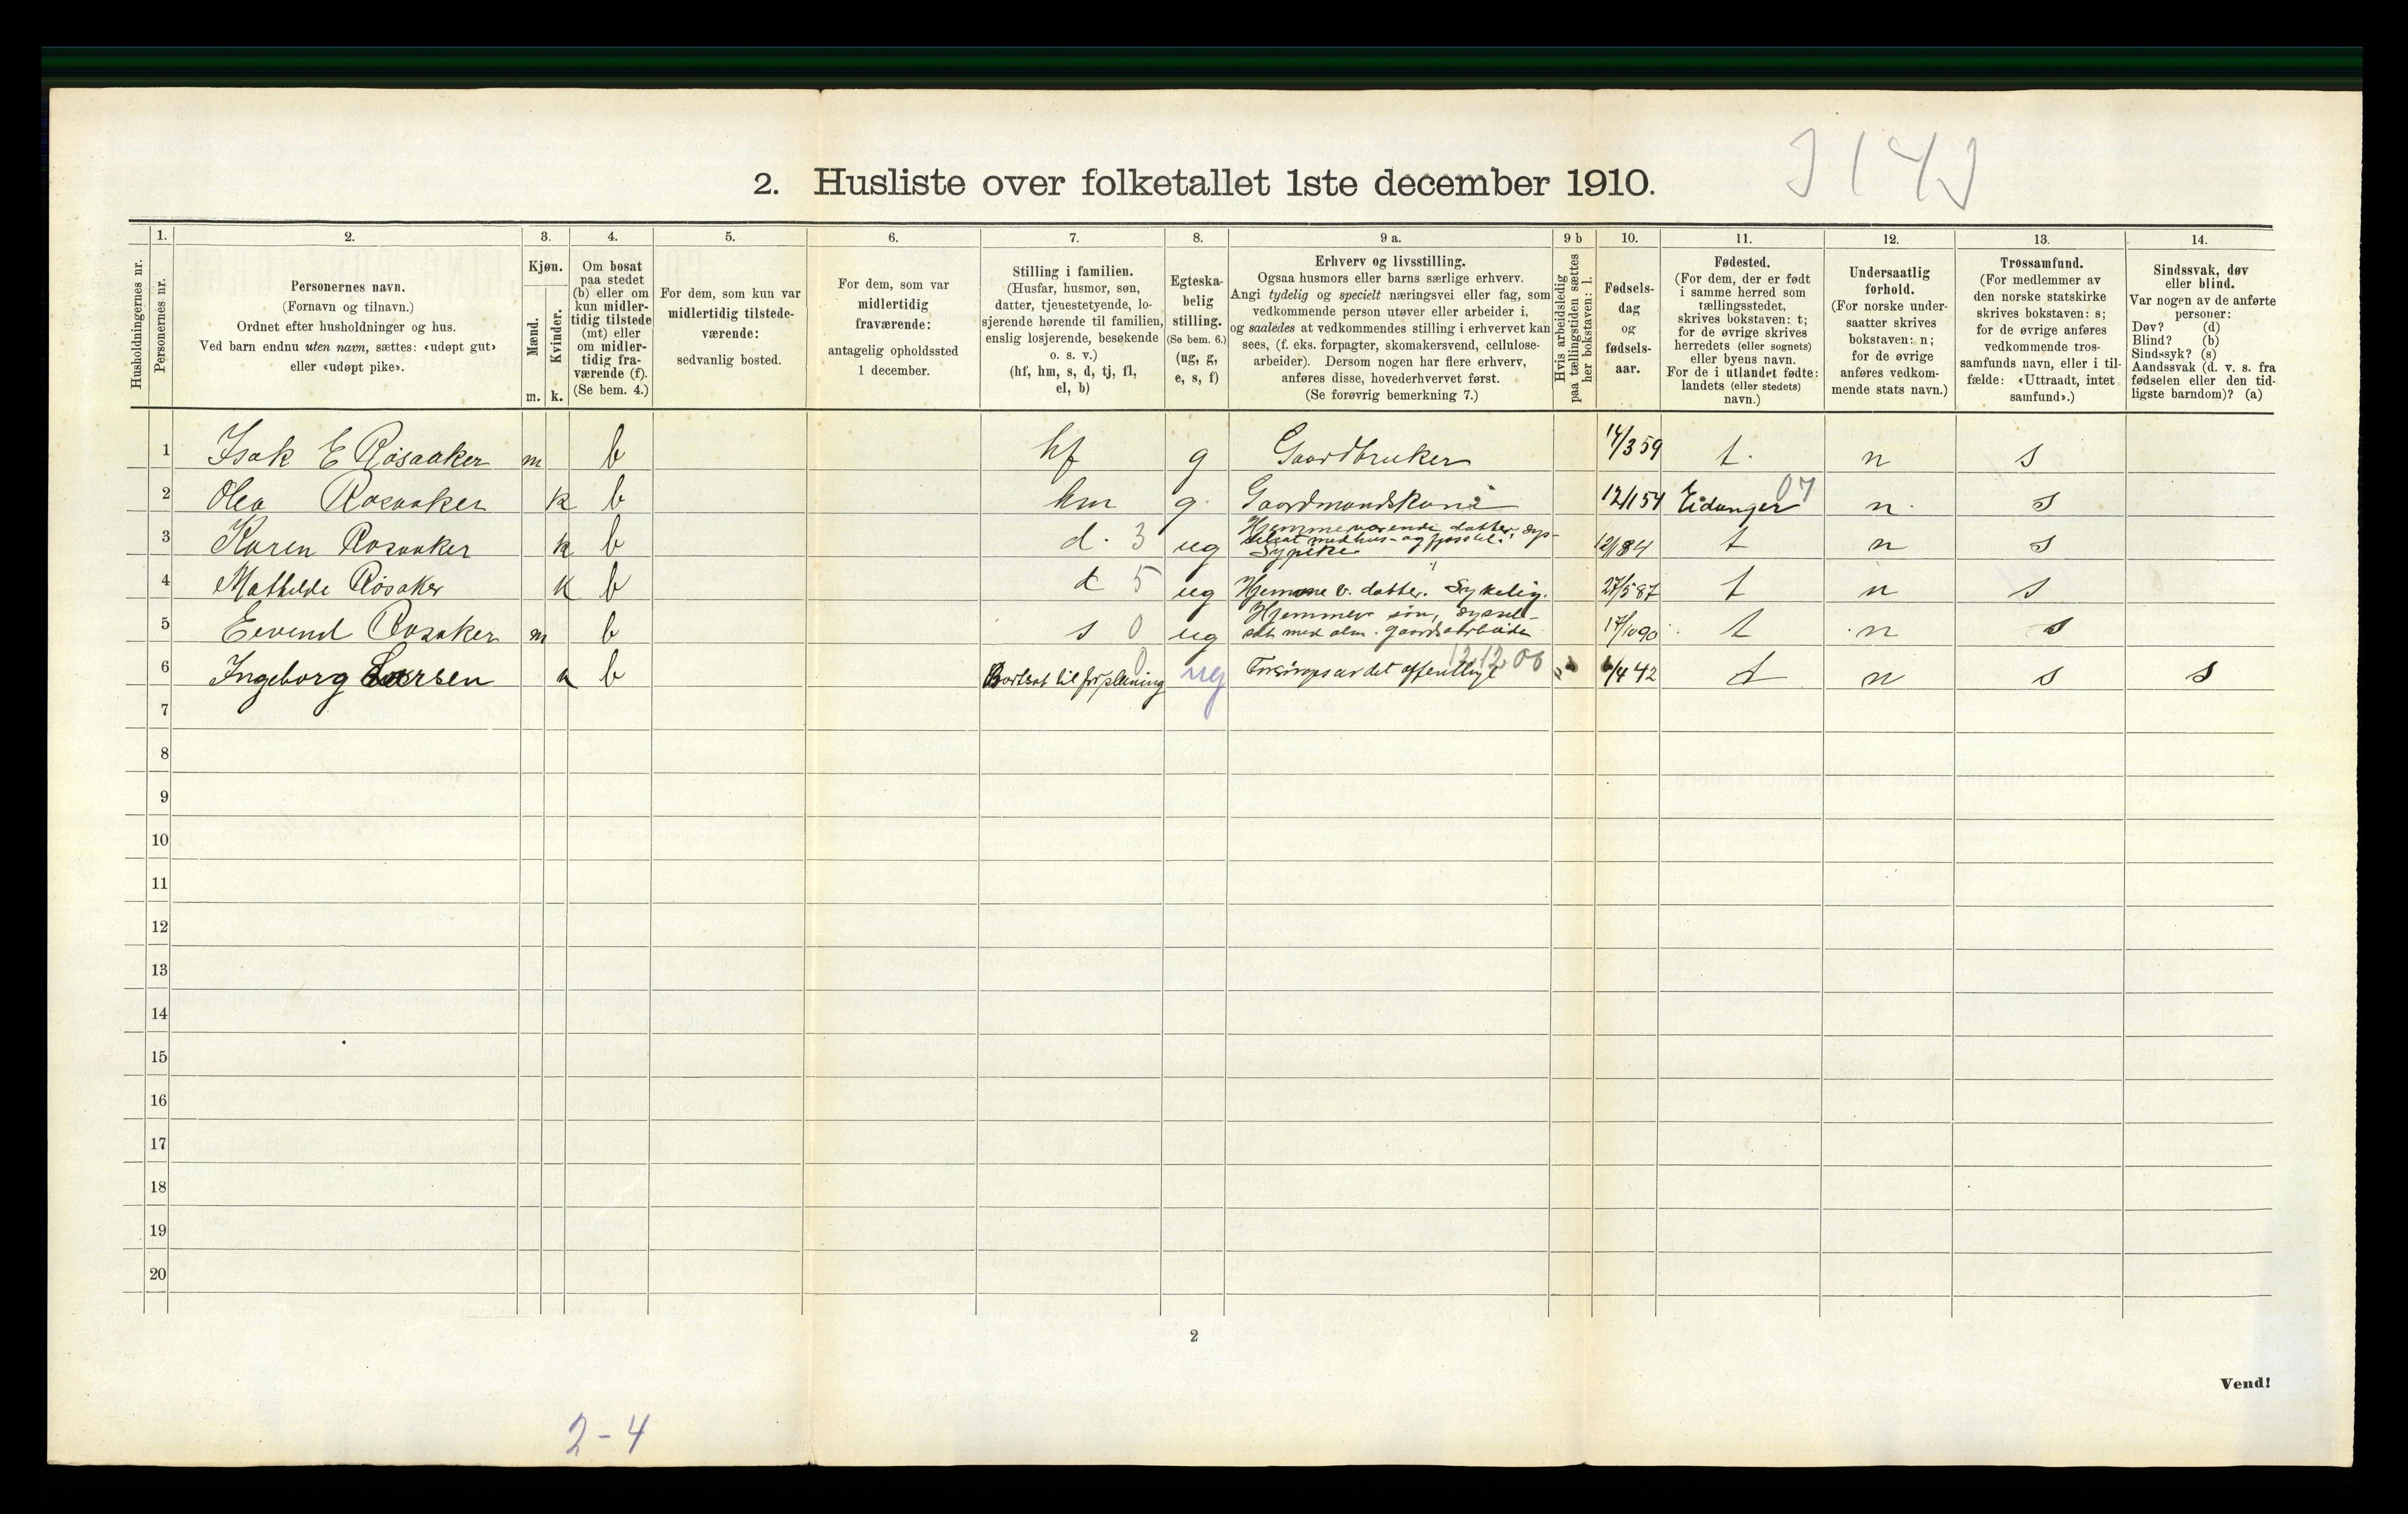 2. Husliste over folketallet 1ste december 1910.
1. 2. 3. 4. 5. 6. 7. 8. 9 a. 9 b 10. 11. 12. 13. 14.
Husholdningernes nr.
Personernes nr.
Personernes navn.
(Fornavn og tilnavn.)
Ordnet efter husholdninger og hus.
Ved barn endnu uten navn, sættes: «udøpt gut»
eller «udøpt pike».
Kjøn.
Mænd.
Kvinder.
m. k.
Om bosat
paa stedet
(b) eller om
kun midler-
tidig tilstede
(mt) eller
om midler-
tidig fra-
værende (f).
(Se bem. 4.)
For dem, som kun var
midlertidig tilstede-
værende:
sedvanlig bosted.
For dem, som var
midlertidig
fraværende:
antagelig opholdssted
1 december.
Stilling i familien.
(Husfar, husmor, søn,
datter, tjenestetyende, lo-
sjerende hørende til familien,
enslig losjerende, besøkende
o. s. v.)
(hf, hm, s, d, tj, fl,
el, b)
Egteska-
belig
stilling.
(Se bem. 6.)
(ug, g,
e, s, f)
Erhverv og livsstilling.
Ogsaa husmors eller barns særlige erhverv.
Angi tydelig og specielt næringsvei eller fag, som
vedkommende person utøver eller arbeider i,
og saaledes at vedkommendes stilling i erhvervet kan
sees, (f. eks. forpagter, skomakersvend, cellulose-
arbeider). Dersom nogen har flere erhverv,
anføres disse, hovederhvervet først.
(Se forøvrig bemerkning 7.)
Hvis arbeidsledig
paa tællingstiden sættes
her bokstaven: l.
Fødsels-
dag
og
fødsels-
aar.
Fødested.
(For dem, der er født
i samme herred som
tællingsstedet,
skrives bokstaven: t;
for de øvrige skrives
herredets (eller sognets)
eller byens navn.
For de i utlandet fødte:
landets (eller stedets)
navn.)
Undersaatlig
forhold.
(For norske under-
saatter skrives
bokstaven: n;
for de øvrige
anføres vedkom-
mende stats navn.)
Trossamfund.
(For medlemmer av
den norske statskirke
skrives bokstaven: s;
for de øvrige anføres
vedkommende tros-
samfunds navn, eller i til-
fælde: «Uttraadt, intet
samfund».)
Sindssvak, døv
eller blind.
Var nogen av de anførte
personer:
Døv? (d)
Blind? (b)
Sindssyk? (s)
Aandssvak (d. v. s. fra
fødselen eller den tid-
ligste barndom)? (a)
1 Isak E Røsaaker m b hf g Gaardbruker 14/3 59 t. n s
2 Olea Rosaaker k b hm g. Gaardmandskone 12/1 54 Eidanger 07 n. s
3 Karen Rosaaker k b d. 3 ug Hjemmeværende datter, sys-
selsat med hus- og fjøsstel.
Sypike 12/1 84 t n s
4 Mathilde Røsaker k b d 5 ug Hjemme v. datter. Sykelig. 27/5 87 t n s
5 Eevend Rosaker m b s 0 ug Hjemmev søn, syssel-
sat med alm. gaardsarbeide 17/10 90 t n s
6 Ingeborg Larsen k b Bortsat til forpleining 0 ug Forsørges av det offentlige 12.12.00 6/4 42 t n s s
7
8
9
10
11
12
13
14
15
16
17
18
19
20
2
Vend!
2-4